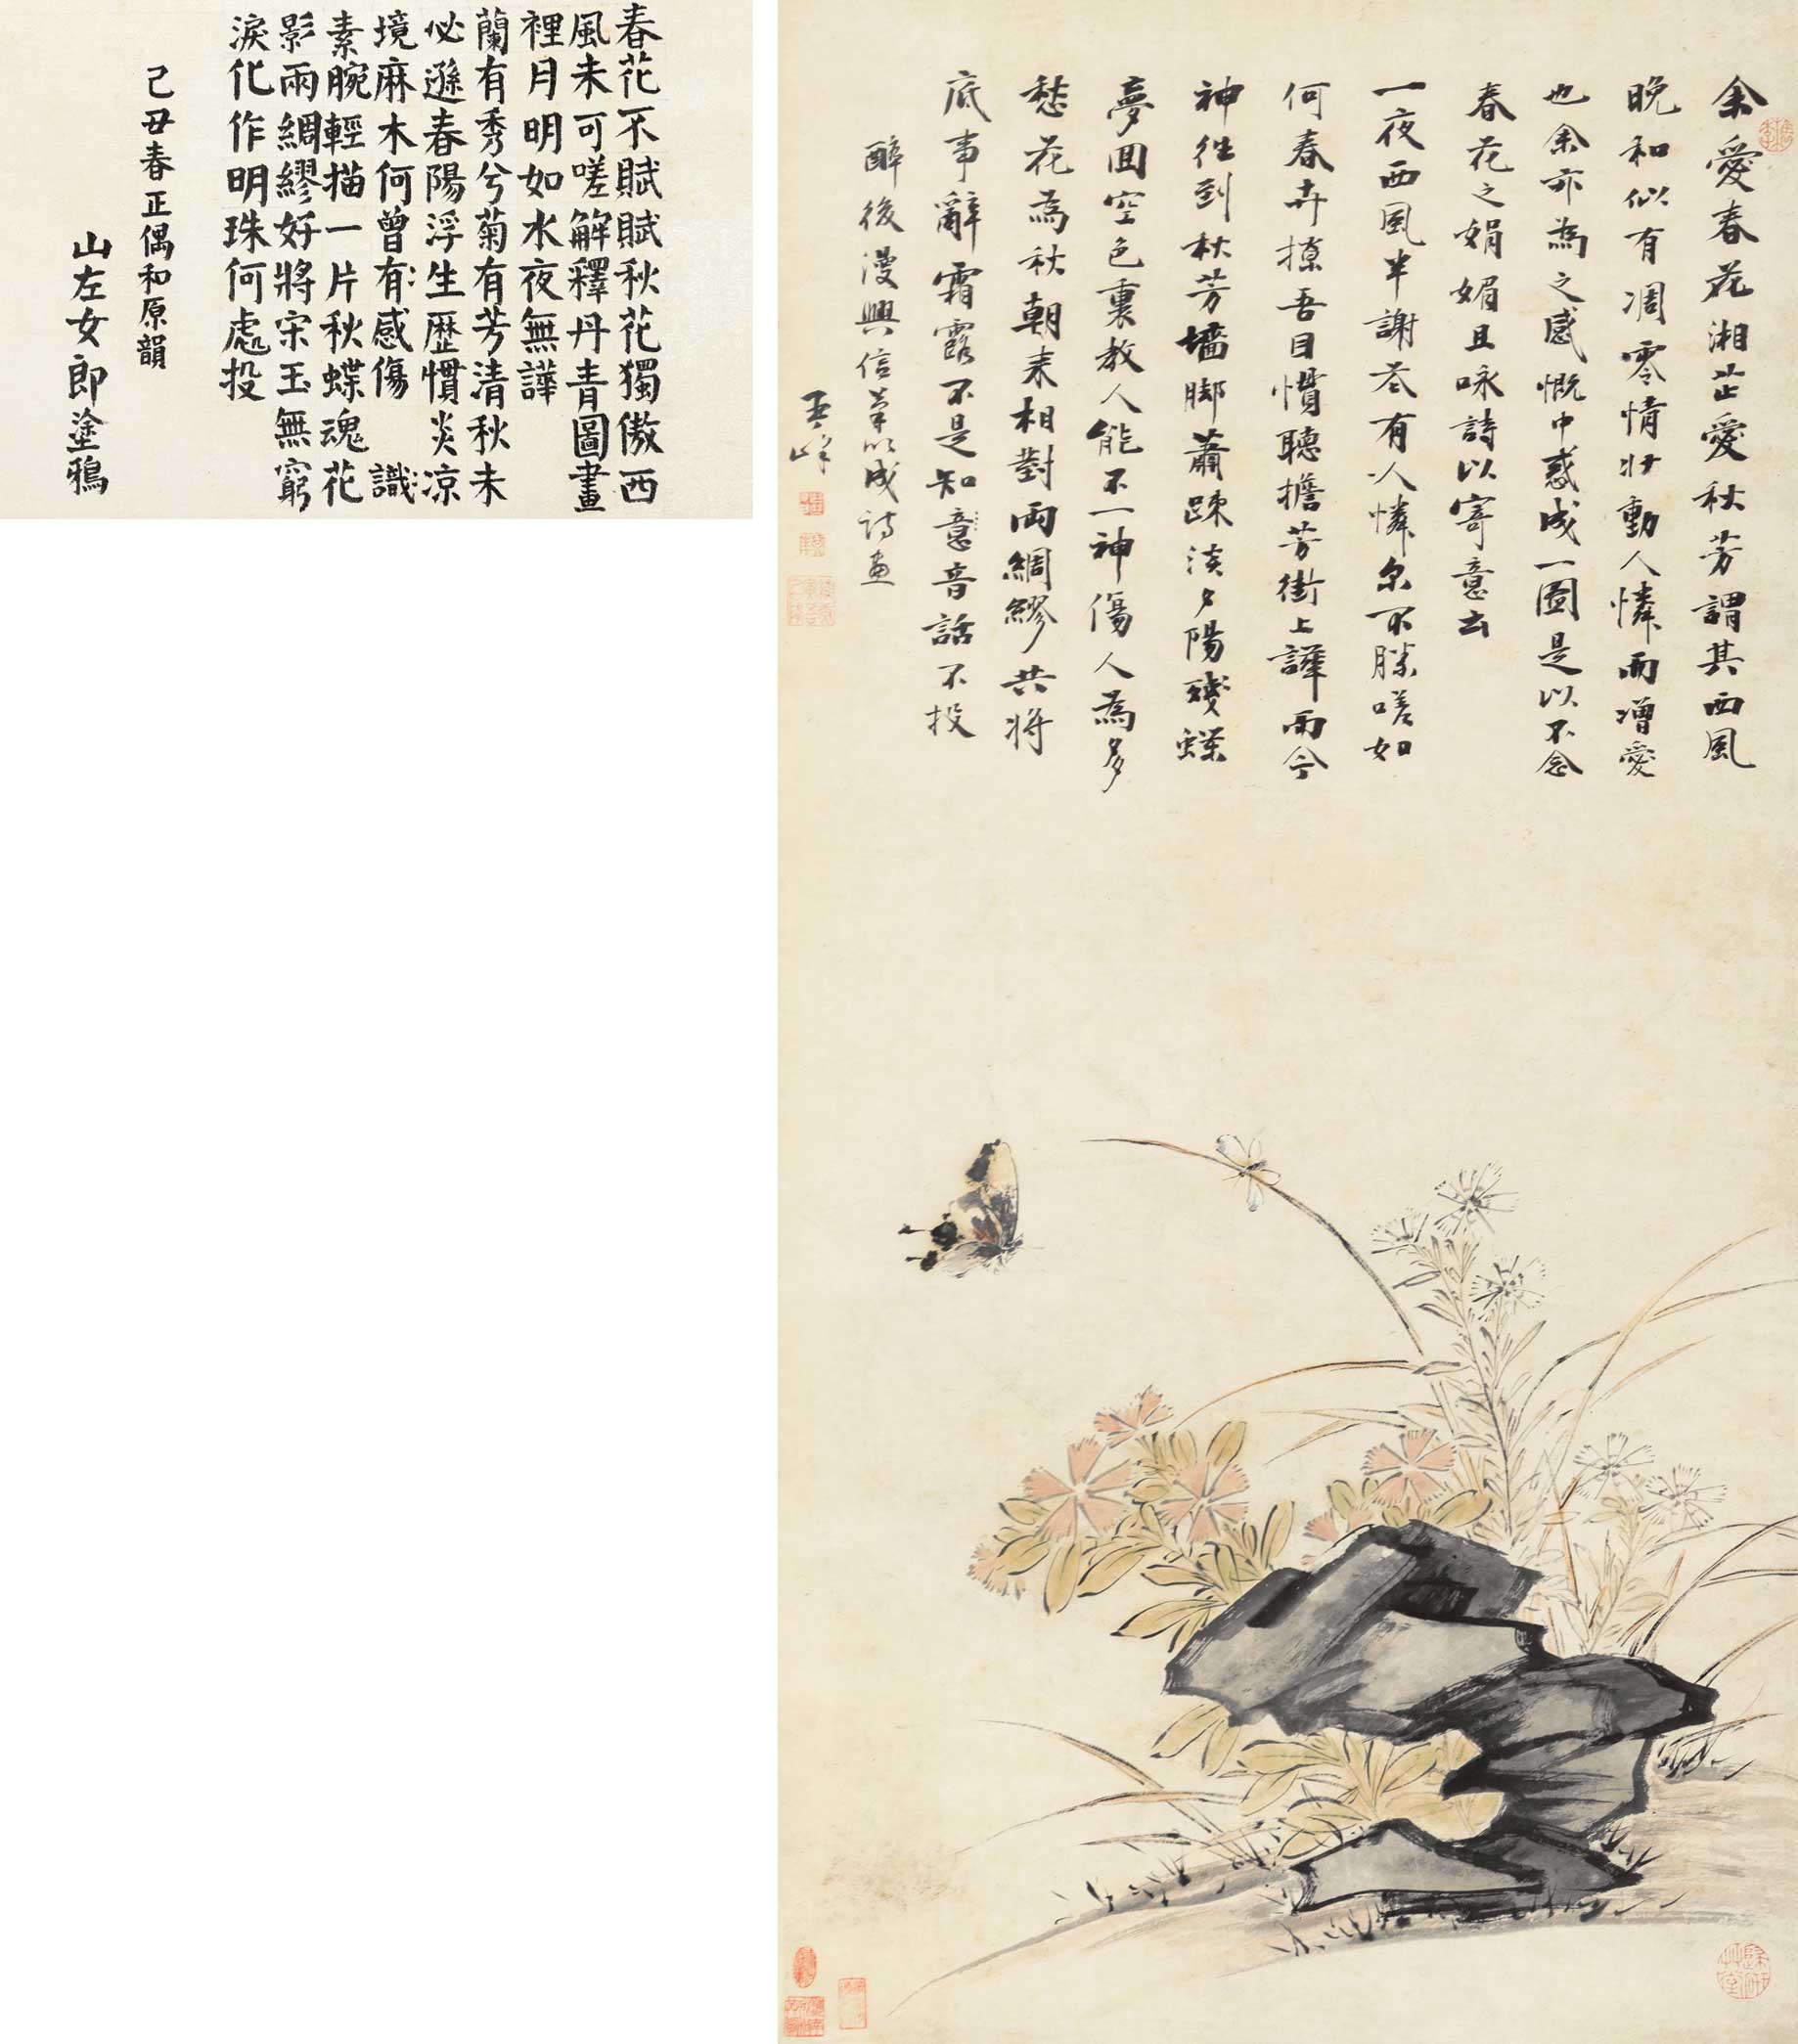 春花不賦賦秋花獨傲西
風未可嗟解釋丹青圖畫
裡月明如水夜無譁
蘭有秀兮菊有芳清秋未
必遜春陽浮生歷慣炎凉
境麻木何曾有感傷 識
素腕輕描一片秋蝶魂花
影兩綢繆好將宋玉無窮
淚化作明珠何處投
己丑春正偶和原韻
山左女郎塗鴉
余愛春花湘芷愛秋芳謂其西風
晚和似有凋零情壯動人憐而增愛
也余亦為之感慨中惑成一圖是以不念
春花之娟媚且咏詩以寄意云
一夜西風半謝花有人憐尔不勝嗟如
何春卉撩吾目慣聽擔芳街上譁而今
神往到秋芳墻脚蕭踈淡夕陽殘蝶
夢回空色裏教人能不一神傷人為多
愁花為秋朝來相對兩綢繆共將
底事辭霜露不是知意音話不投
醉後漫興信筆以成詩畫